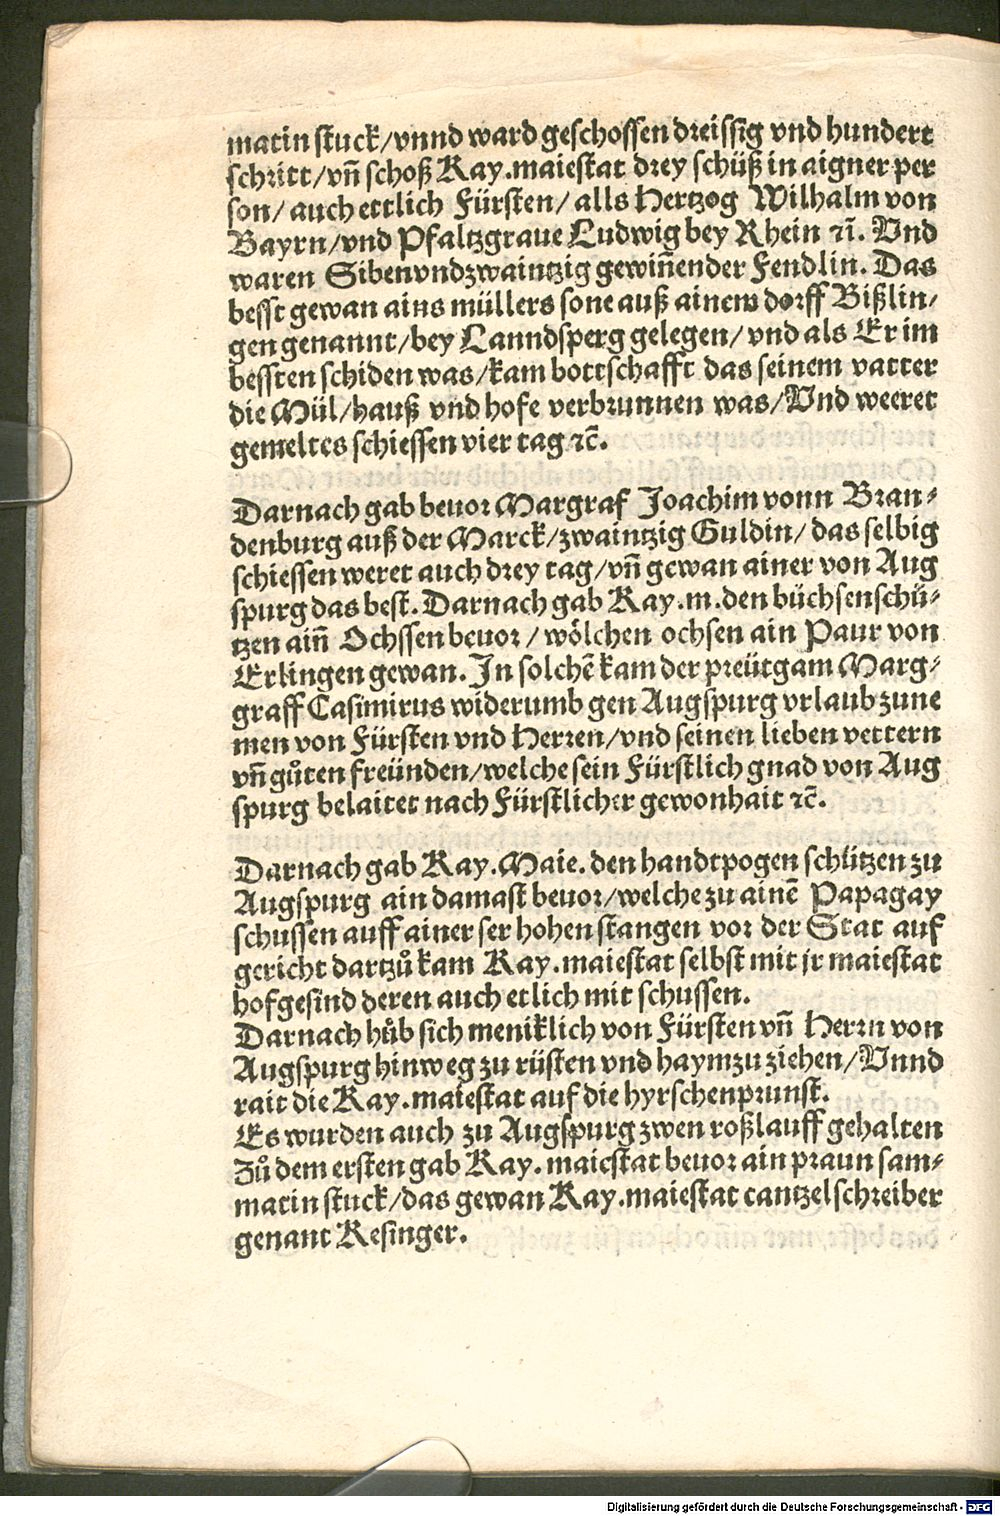 matin stuck/vnnd ward geschossen dreissig vnd hundert
schritt/vn̄ schoß Kay.maiestat drey schüß in aigner per
son/ auch ettlich Fürsten/ alls Hertzog Wilhalm von
Bayrn/vnd Pfaltzgraue Ludwig bey Rhein ꝛc̄. Vnd
waren Sibenvndzwaintzig gewin̄ender Fendlin. Das
besst gewan ains müllers sone auß ainem dorff Bißlin/
gen genannt/bey Lanndsperg gelegen/ vnd als Er im
bessten schiden was/kam bottschafft das seinem vatter
die Mül/hauß vnd hofe verbrunnen was/Vnd weeret
gemeltes schiessen vier tag ꝛc̄.
Darnach gab beuor Margraf Joachim vonn Bran⸗
denburg auß der Marck/zwaintzig Guldin/ das selbig
schiessen weret auch drey tag/vn̄ gewan ainer von Aug
spurg das best. Darnach gab Kay.m.den büchsenschü⸗
tzen ain̄ Ochssen beuor/wölchen ochsen ain Paur von
Erlingen gewan. In solchē kam der preütgam Marg⸗
graff Casimirus widerumb gen Augspurg vrlaub zune
men von Fürsten vnd Herren/vnd seinen lieben vettern
vn̄ gůten freünden/welche sein Fürstlich gnad von Aug
spurg belaitet nach Fürstlicher gewonhait ꝛc̄.
Darnach gab Kay.Maie.den handtpogen schützen zu
Augspurg ain damast beuor/welche zu ainē Papagay
schussen auff ainer ser hohen stangen vor der Stat auf
gericht dartzů kam Kay.maiestat selbst mit jr maiestat
hofgesind deren auch etlich mit schussen.
Darnach hůb sich meniklich von Fürsten vn̄ Herrn von
Augspurg hinweg zu rüsten vnd haymzu ziehen/Vnnd
rait die Kay.maiestat auf die hyrschenprunst.
Es wurden auch zu Augspurg zwen roßlauff gehalten
Zů dem ersten gab Kay.maiestat beuor ain praun sam⸗
matin stuck/das gewan Kay.maiestat cantzelschreiber
genant Resinger.
Digitalisierung gefördert durch die Deutsche Forschungsgemeinschaft - DFG